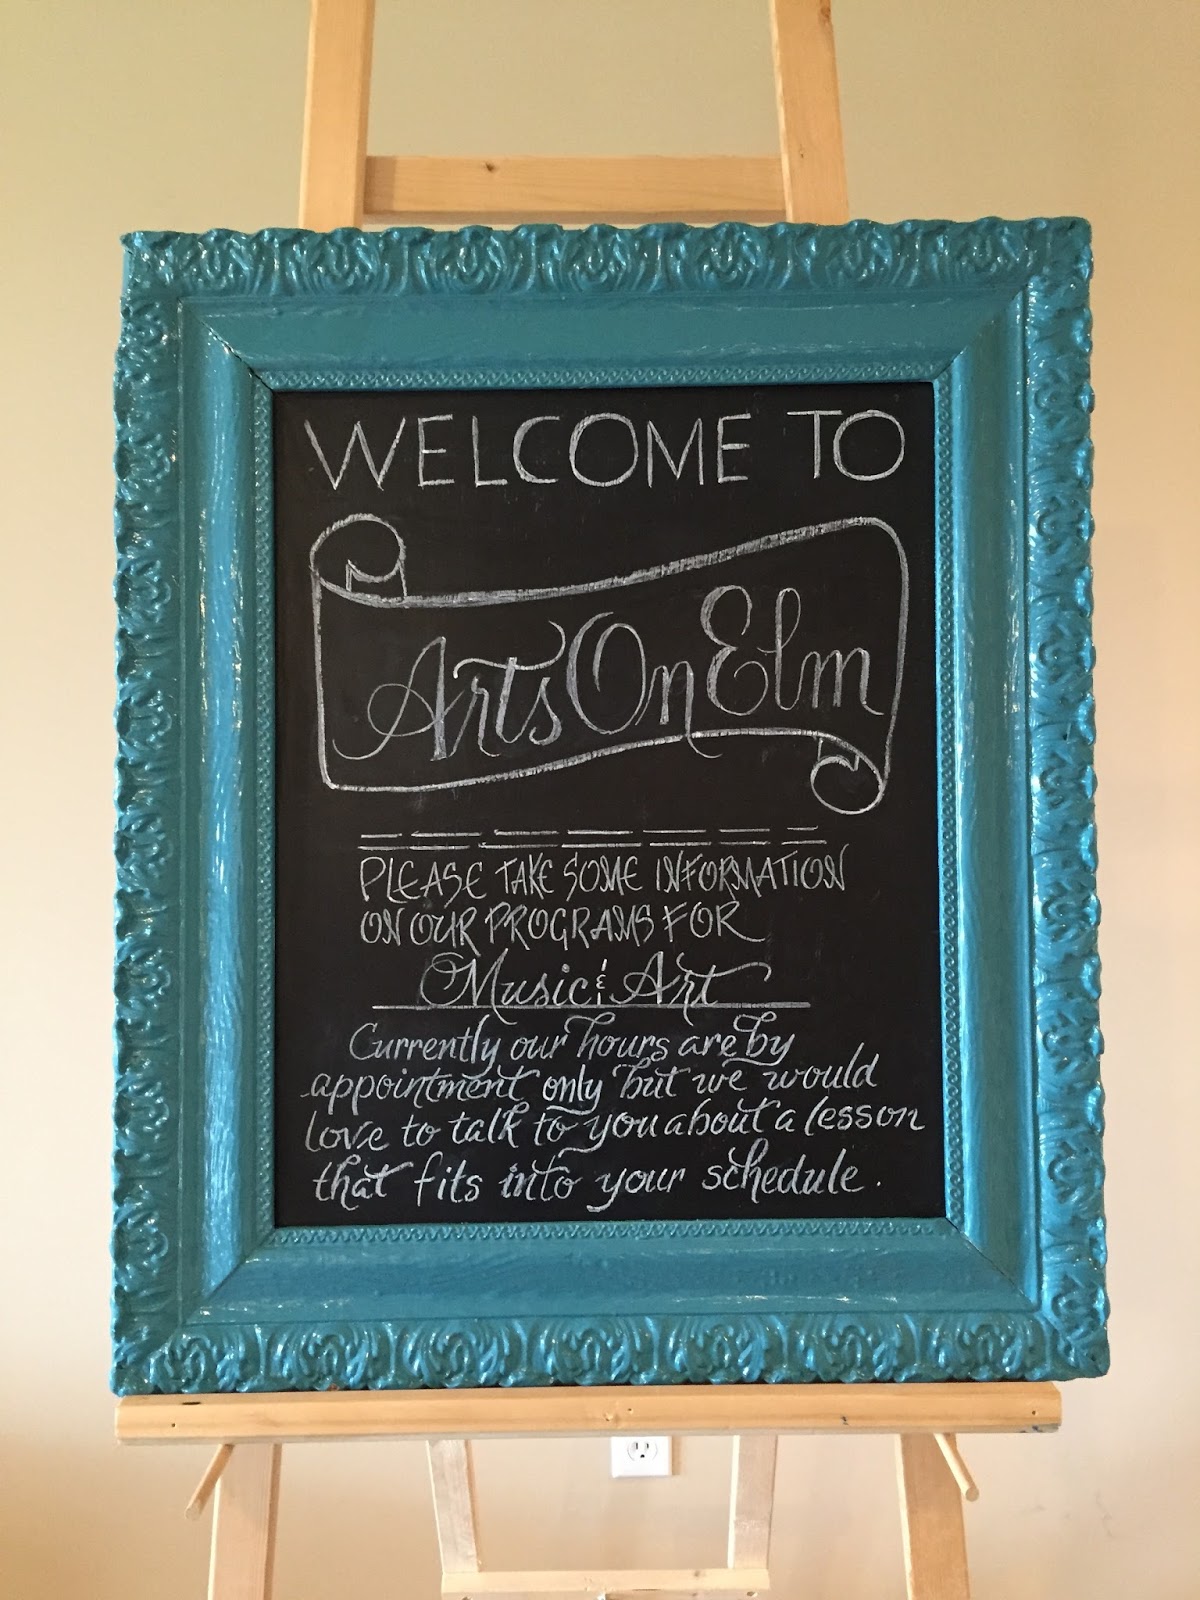 WELCOME TO
Arts On Elm
PLEASE TAKE SOME INFORMATION
ON OUR PROGRAMS FOR
Music & Art
Currently our hours are by
appointment only but we would
love to talk to you about a lesson
that fits into your schedule.